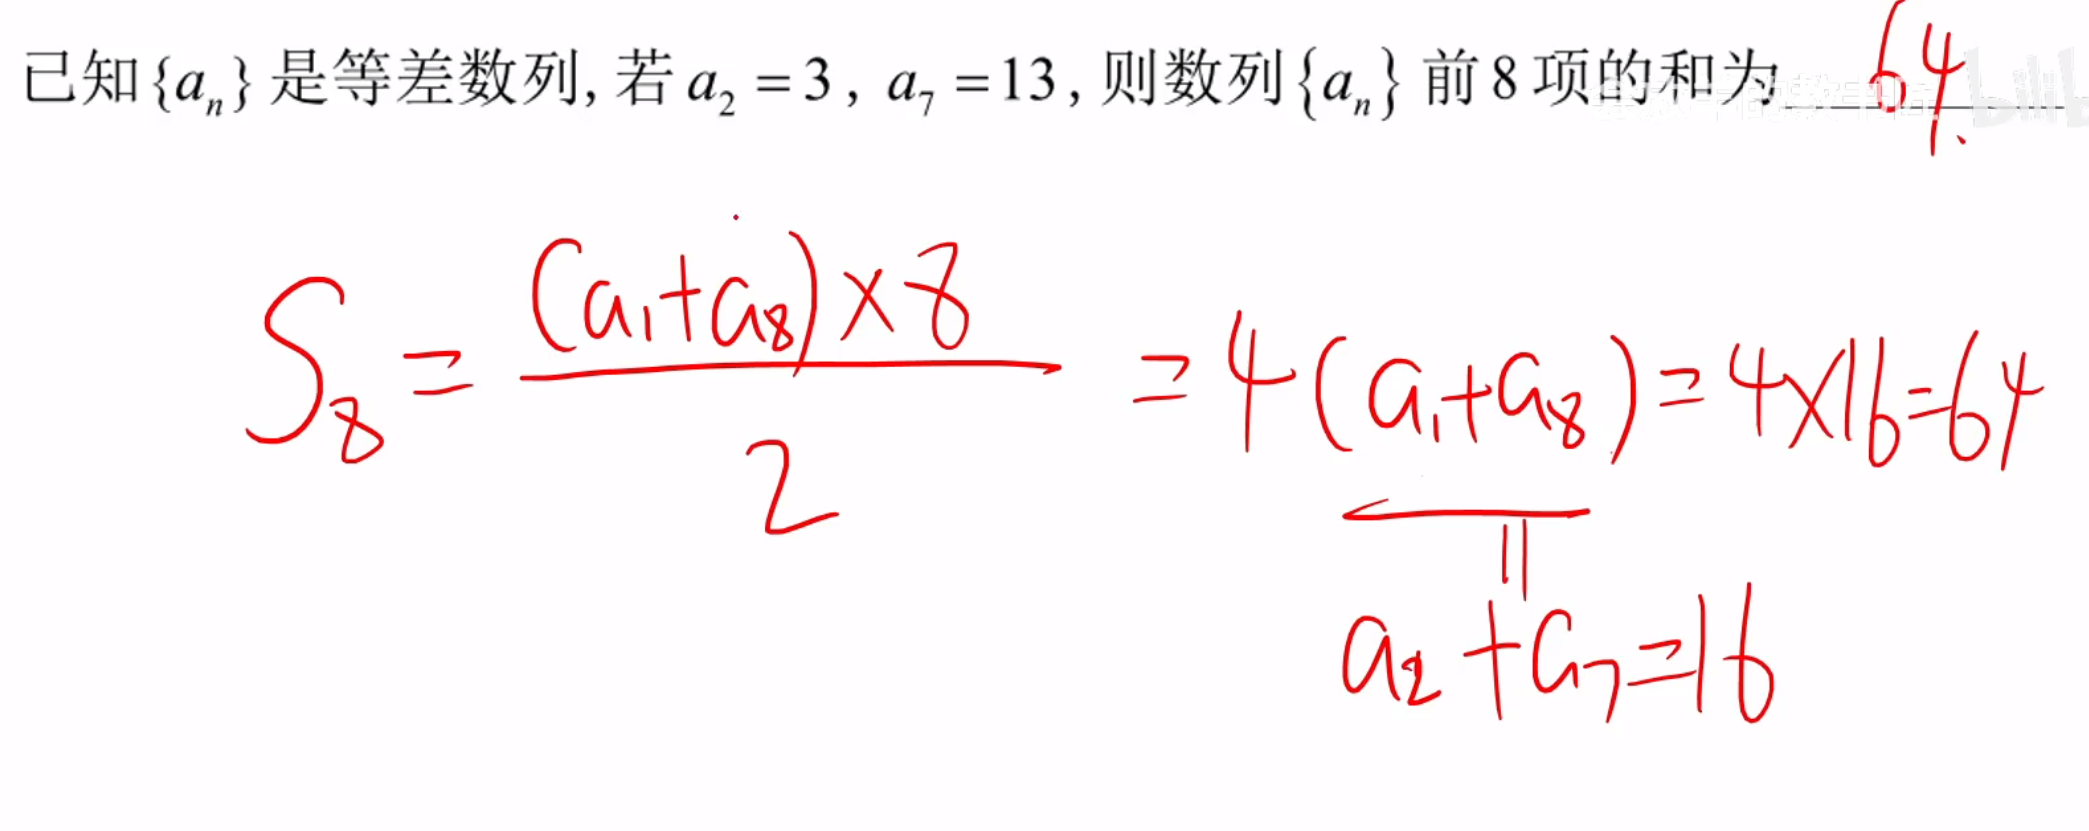 已知{aₙ}是等差数列, 若 a₂ = 3, a₇ = 13, 则数列{aₙ}前8项的和为 64.
S₈ = (a₁+a₈)×8 / 2 = 4(a₁+a₈) = 4×16 = 64
a₂ + a₇ = 16